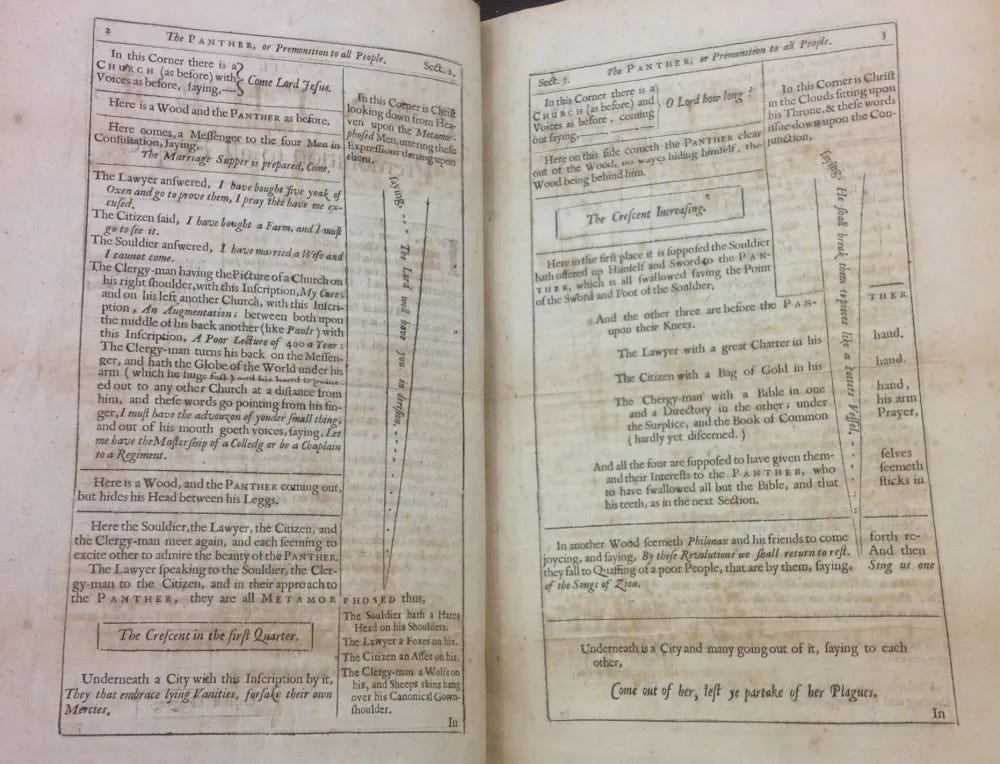 2
The PANTHER, or Premonition to all People.
Sect. 2.
In this Corner there is a
CHURCH (as before) with
Voices as before, ſaying,----
Come Lord Jeſus.
Here is a Wood and the PANTHER as before.
Here comes a Meſſenger to the four Men in
Conſultation, ſaying,
The Marriage Supper is prepared, Come.
The Lawyer anſwered, I have bought five yoak of
Oxen and go to prove them, I pray thee have me ex-
cuſed.
The Citizen ſaid, I have bought a Farm, and I muſt
go to ſee it.
The Souldier anſwered, I have married a Wife and
I cannot come.
The Clergy-man having the Picture of a Church on
his right ſhoulder, with this Inſcription, My Cure;
and on his left another Church, with this Inſcri-
ption, An Augmentation; between both upon
the middle of his back another (like Pauls) with
this Inſcription, A Poor Lecture of 400 a Year:
The Clergy-man turns his back on the Meſſen-
ger, and hath the Globe of the World under his
arm (which he hugs faſt) and his hand is point-
ed out to any other Church at a diſtance from
him, and theſe words go pointing from his fin-
ger, I muſt have the advouzon of yonder ſmall thing,
and out of his mouth goeth voices, ſaying, Let
me have the Maſterſhip of a Colledg or be a Chaplain
to a Regiment.
Here is a Wood, and the PANTHER coming out,
but hides his Head between his Leggs.
Here the Souldier, the Lawyer, the Citizen, and
the Clergy-man meet again, and each ſeeming to
excite other to admire the beauty of the PANTHER.
The Lawyer ſpeaking to the Souldier, the Cler-
gy-man to the Citizen, and in their approach to
the PANTHER, they are all METAMORPHOSED thus,
The Creſcent in the firſt Quarter.
Underneath a City with this Inſcription by it,
They that embrace lying Vanities, forſake their own
Mercies.
In this Corner is Chriſt
looking down from Hea-
ven upon the Metamor-
phoſed Men, uttering theſe
Expreſſions darting upon
them,
ſaying, --- The Lord will have you in deriſion,
The Souldier hath a Hares
Head on his Shoulders.
The Lawyer a Foxes on his.
The Citizen an Aſſes on his.
The Clergy-man a Wolfs on
his, and Sheeps skins hang
over his Canonical Gown-
ſhoulder.
In
Sect. 3.
The PANTHER, or Premonition to all People.
3
In this Corner there is a
CHURCH (as before) and
Voices as before, coming
out ſaying,
O Lord how long?
Here on this ſide cometh the PANTHER clear
out of the Wood, no wayes hiding himſelf, the
Wood being behind him.
The Creſcent Increaſing.
In this Corner is Chriſt
in the Clouds ſitting upon
his Throne, & theſe words
iſſue down upon the Con-
junction,
ſaying, He ſhall break them to pieces like a Potters Veſſel.
Here in the firſt place it is ſuppoſed the Souldier
hath offered up Himſelf and Sword to the PAN-THER
THER, which is all ſwallowed ſaving the Point
of the Sword and Foot of the Souldier.
And the other three are before the PAN- THER
upon their Knees.
The Lawyer with a great Charter in his hand.
The Citizen with a Bag of Gold in his hand.
The Clergy-man with a Bible in one hand,
and a Directory in the other; under his arm
the Surplice, and the Book of Common Prayer,
(hardly yet diſcerned.)
And all the four are ſuppoſed to have given them- ſelves
and their Intereſts to the PANTHER, who ſeemeth
to have ſwallowed all but the Bible, and that ſticks in
his teeth, as in the next Section.
In another Wood ſeemeth Philonax and his friends to come forth re-
joycing, and ſaying, By theſe Revolutions we ſhall return to reſt. And then
they fall to Quaffing of a poor People, that are by them, ſaying, Sing us one
of the Songs of Zion.
Underneath is a City and many going out of it, ſaying to each
other,
Come out of her, leſt ye partake of her Plagues.
In